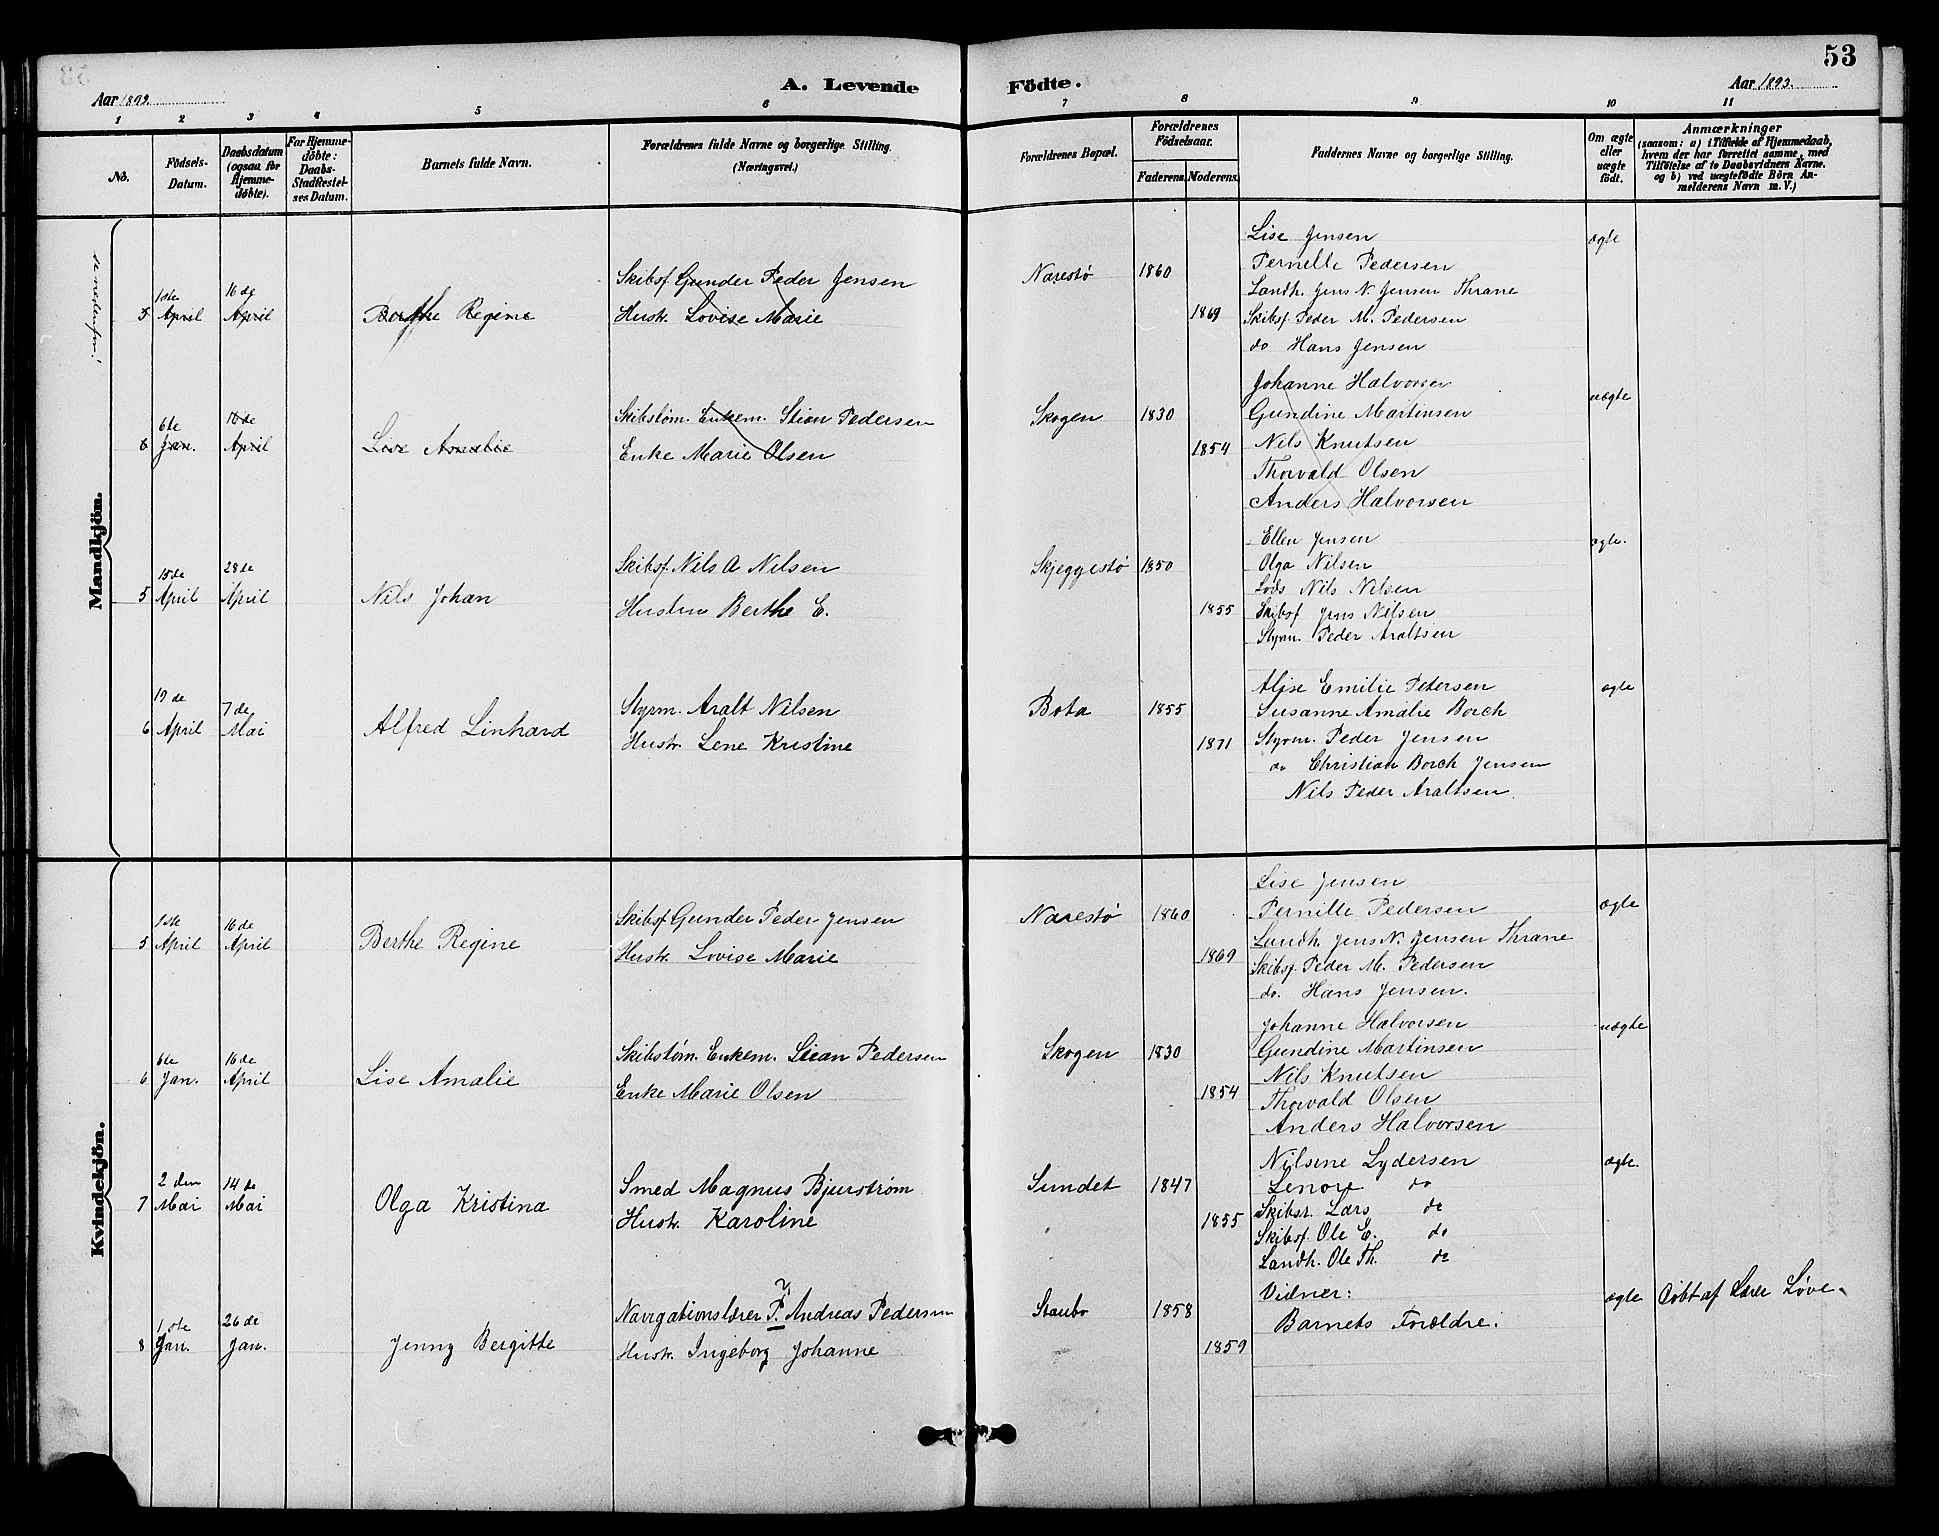 53
A. Levende Födte.
Aar 1893.
Aar 1893.
1 2 3 4 5 6 7 8 9 10 11
No.
Födsels-Datum.
Daabsdatum (ogsaa for Hjemme-döbte).
For Hjemme-döbte: Daabs-Stadfæstel-ses Datum.
Barnets fulde Navn.
Forældrenes fulde Navne og borgerlige Stilling. (Næringsvei.)
Forældrenes Bopæl.
Forældrenes Födselsaar.
Faderens. Moderens.
Faddernes Navne og borgerlige Stilling.
Om ægte eller uægte födt.
Anmærkninger
(saasom: a) i Tilfælde af Hjemmedaab,
hvem der har forrettet samme, med
Tilföielse af to Daabsvidners Navne,
og b) ved uægtefödte Börn An-
melderens Navn m. V.)
Mandkjön.
se nedenfor!
5 1ste April 16de April Berthe Regine
Skibsf. Gunder Peder Jensen
Hustr. Lovise Marie
Narestø 1860 1869
Lise Jensen
Pernille Pedersen
Landh. Jens N. Jensen Thrane
Skibsf. Peder M. Pedersen
do Hans Jensen
ægte
6 6te Jan. 16de April Lise Amalie
Skibstøm. Enkem. Stian Pedersen
Enke Marie Olsen
Skogen 1830 1854
Johanne Halvorsen
Gundine Martinsen
Nils Knutsen
Thorvald Olsen
Anders Halvorsen
uægte
5 15de April 28de April Nils Johan
Skibsf. Nils A Nilsen
Hustru Berthe E.
Skjeggestø 1850 1855
Ellen Jensen
Olga Nilsen
Lods Nils Nilsen
Skibsf. Jens Nilsen
Styrm. Peder Araltsen
ægte.
6 19de April 7de Mai Alfred Linhard
Styrm. Aralt Nilsen
Hustr. Lene Kristine
Bota 1855 1871
Alise Emilie Pedersen
Susanne Amalie Borch
Styrm. Peder Jensen
do Christian Borch Jensen
Nils Peder Araltsen
ægte
Kvindekjön.
5 1ste April 16de April Berthe Regine
Skibsf. Gunder Peder Jensen
Hustr. Lovise Marie
Narestø 1860 1869
Lise Jensen
Pernille Pedersen
Landh. Jens N. Jensen Thrane
Skibsf. Peder M. Pedersen
do. Hans Jensen.
ægte
6 6te Jan. 16de April Lise Amalie
Skibstøm. Enkem. Stian Pedersen
Enke Marie Olsen
Skogen 1830 1854
Johanne Halvorsen
Gundine Martinsen
Nils Knutsen
Thorvald Olsen
Anders Halvorsen
uægte
7 2den Mai 14de Mai Olga Kristina
Smed Magnus Bjurstrøm
Hustr. Karoline
Sundet 1847 1855
Nilsine Lydersen
Lenore do
Skibsr. Lars do
Skibsf. Ole E. do
Landh. Ole Th. do
ægte.
8 1ste Jan. 26de Jan. Jenny Bergitte
Navigationslærer P. Andreas Pedersen
Hustr. Ingeborg Johanne
Staubo 1858 1859
Vidner:
Barnets Forældre.
ægte
Döbt af Lærer Løve